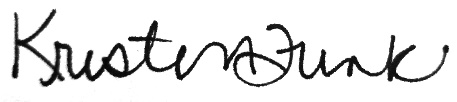 Kristen Funk